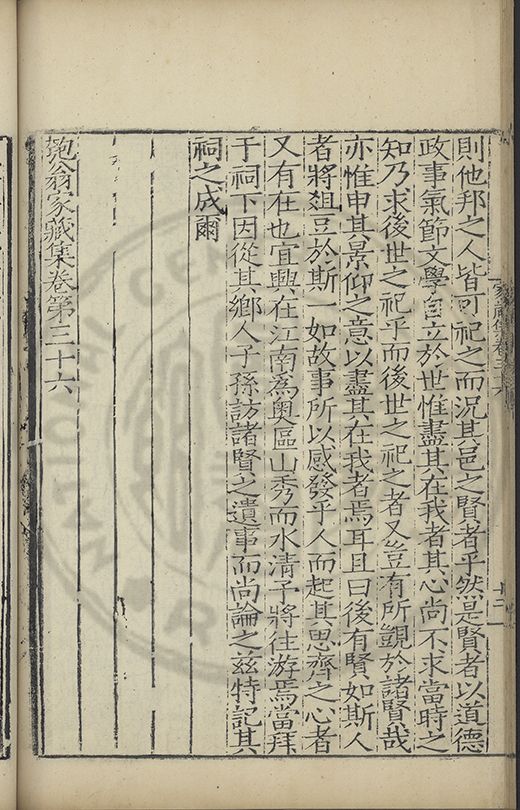 則他邦之人皆可祀之而況其邑之賢者乎然是賢者以道德
政事氣節文學自立於世惟盡其在我者其心尚不求當時之
知乃求後世之祀乎而後世之祀之者又豈有所覬於諸賢哉
亦惟申其景仰之意以盡其在我者焉耳且曰後有賢如斯人
者將爼豆於斯一如故事所以感發乎人而起其思齊之心者
又有在也宜興在江南爲奥區山秀而水清予將往游焉當拜
于祠下因從其鄉人子孫訪諸賢之遺事而尚論之兹特記其
祠之成爾
匏翁家藏集卷第三十六